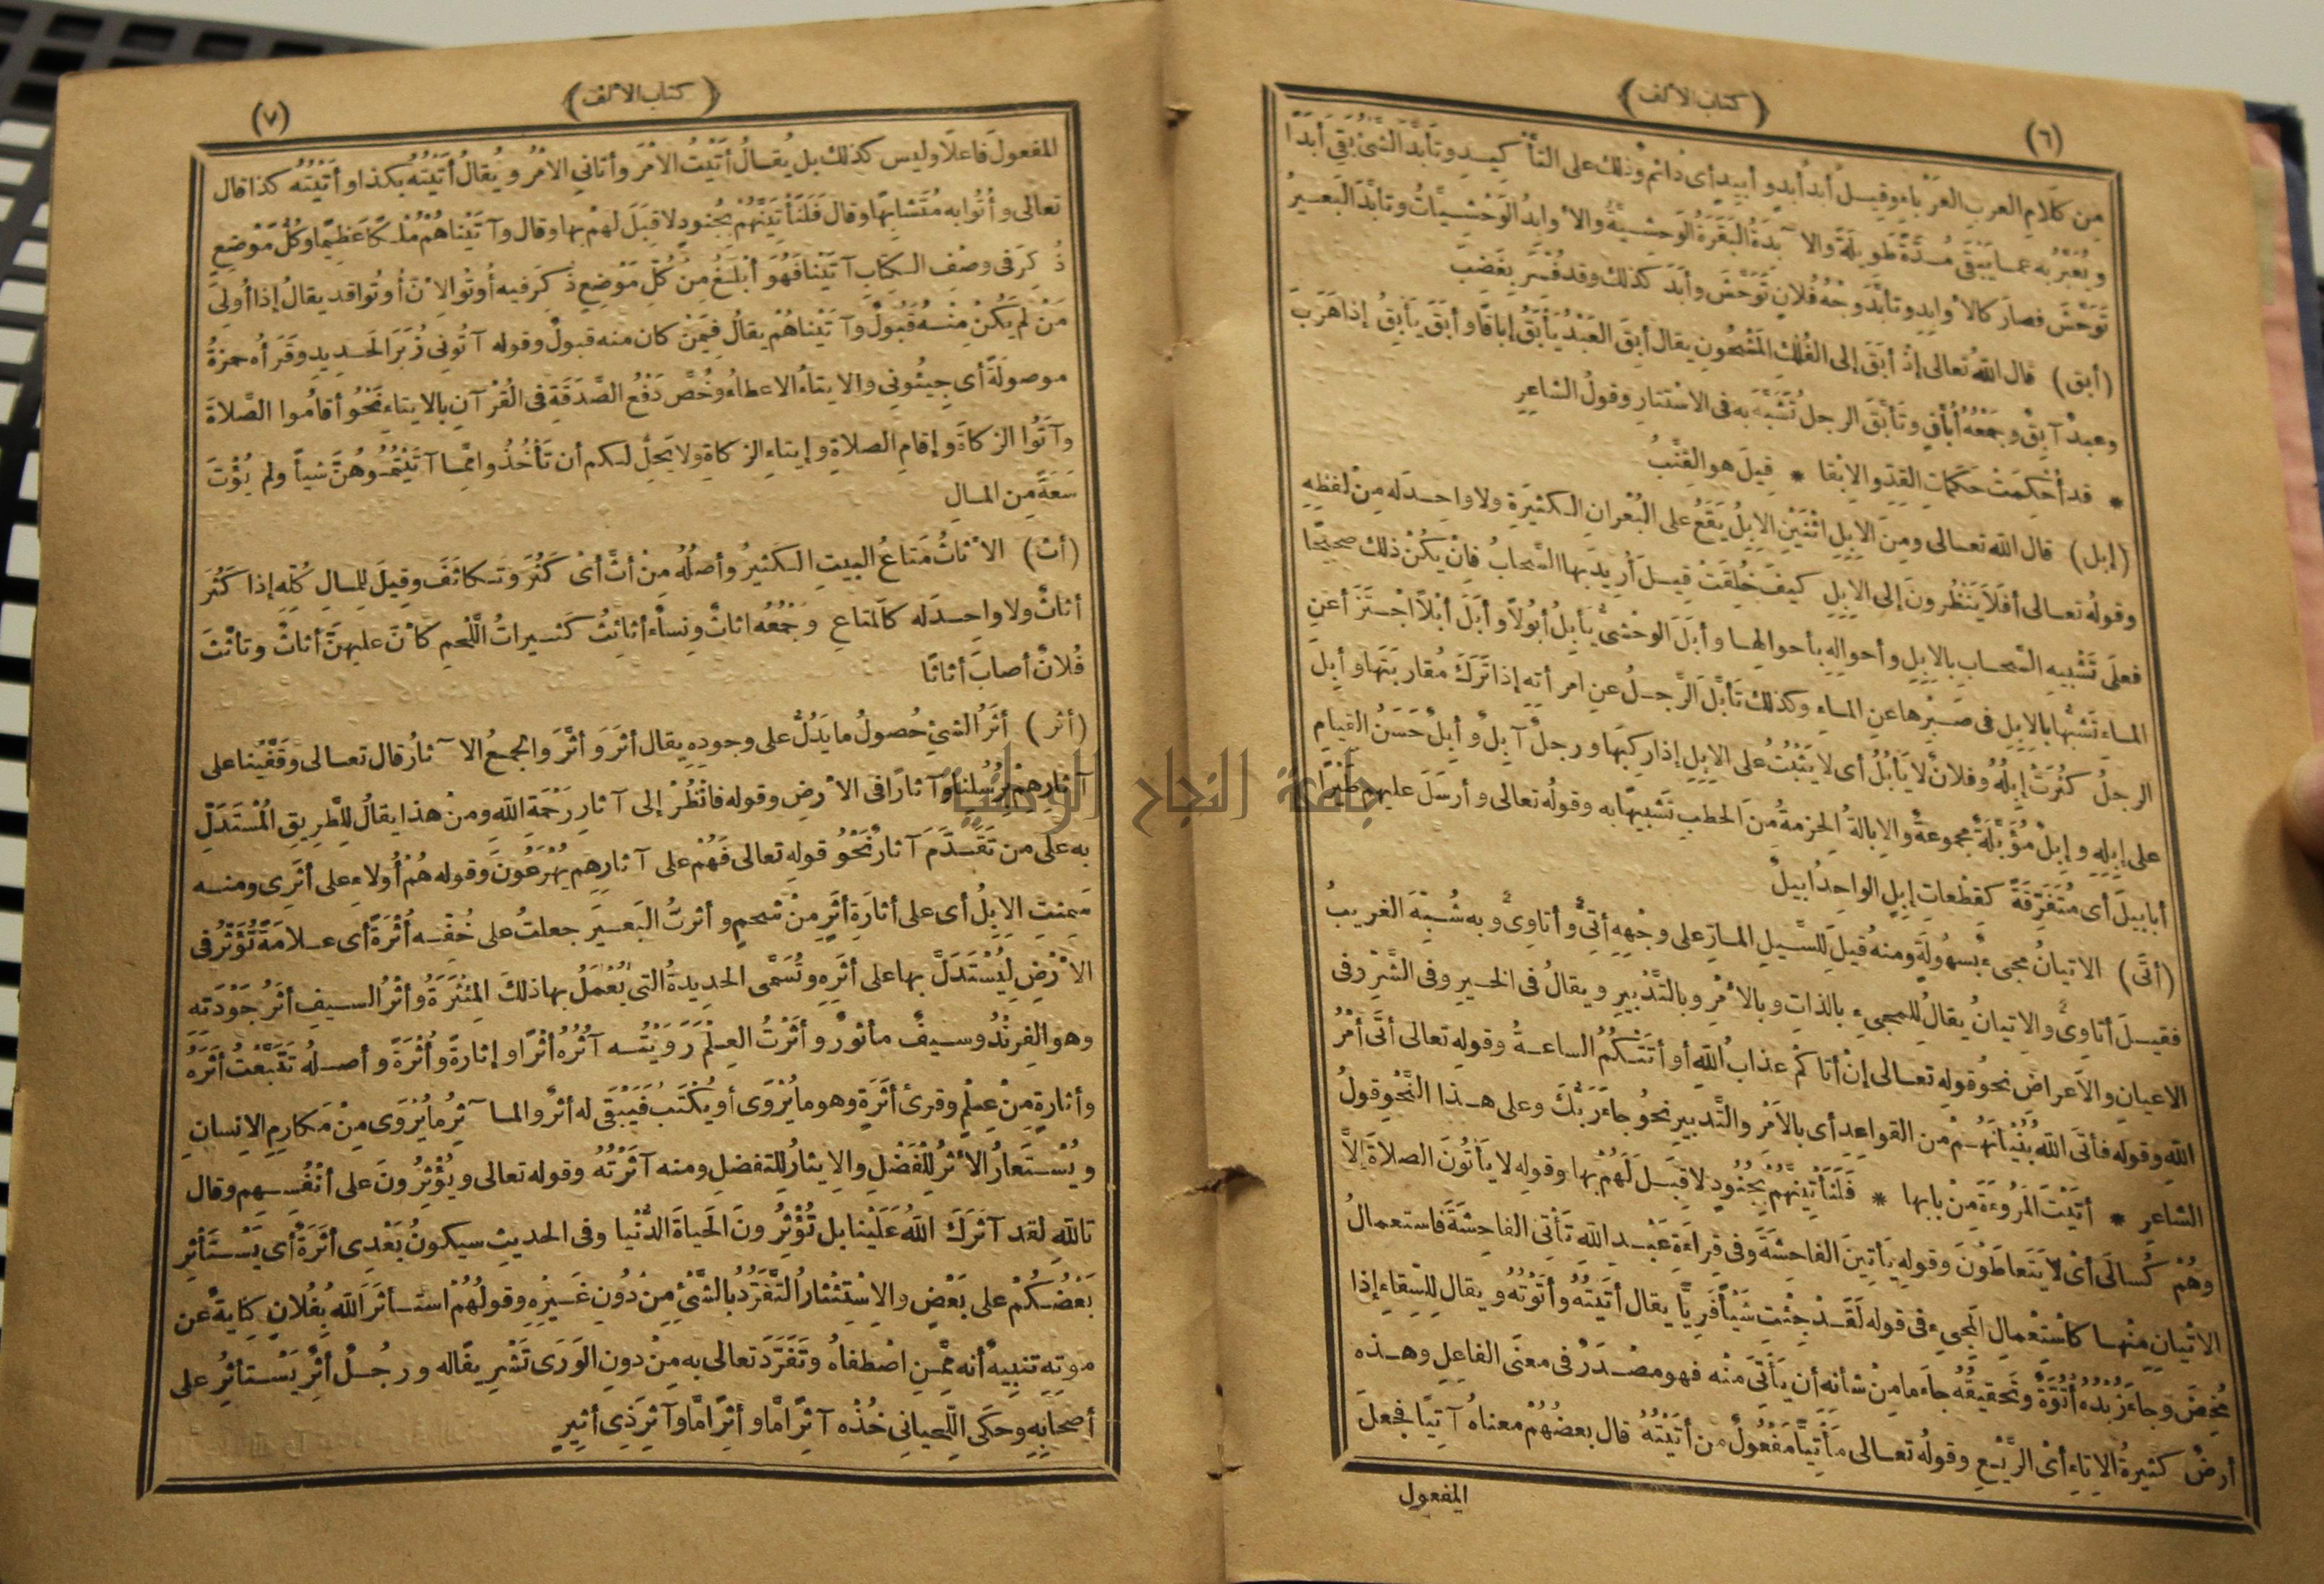 (٦)
﴿ كتاب الألف ﴾
مِن كَلامِ العربِ العَرْباءِ وقِيلَ أبد أَبدٌ وأبيدٍ أى دائمٌ وذلك على التأكيدِ وتأبَّدَ الشىءُ بَقِىَ أبدًا
ويُعَبَّرُ به عما يَبْقَى مُدَّةً طَوِيلَةً والآبِدَةُ البَقَرَةُ الوَحْشِيَّةُ والأوابِدُ الوَحْشِيَّاتُ وتأبَّدَ البَعيرُ
تَوَحَّشَ فصارَ كالأوابِدِ وتأبَّدَ وَجْهُ فُلانٍ تَوَحَّشَ وأَبَدَ كذلك وقد فُسِّرَ بِغَضِبَ
(أبق) قال اللهُ تعالى إذْ أبَقَ إلى الفُلْكِ المَشْحُونِ يقال أبَقَ العَبْدُ يَأْبَقُ إباقًا وأبِقَ يَأْبِقُ إذا هَرَبَ
وعبدٌ آبِقٌ وجَمْعُهُ أُبَّاقٌ وتَأَبَّقَ الرجلُ تَشَبَّهَ به فى الاسْتتارِ وقولُ الشاعرِ
* قد أُحْكِمَتْ حَكَمَاتِ القِدِّ والأَبَقَا * قيلَ هو القِنَّبُ
(إبل) قال الله تعالى ومِنَ الإبِلِ اثْنَيْنِ الإبِلُ يَقَعُ على البُعْرانِ الكَثيرَةِ ولا واحِدَ له مِنْ لفظِهِ
وقولُه تعالى أفَلاَ يَنْظُرُونَ إلى الإبِلِ كيفَ خُلِقَتْ قِيلَ أُرِيدَ بها السَّحابُ فإنْ يكُنْ ذلك صحيحًا
فعلَى تَشْبِيهِ السَّحابِ بالإبِلِ وأحوالِه بأحوالِها وأبَلَ الوحْشىُّ يَأْبِلُ أُبُولاً وأبَلَ أَبْلاً اجْتَزَأَ عَنِ
الماءِ تَشَبُّهًا بالإبِلِ فى صَبْرِها عنِ الماءِ وكذلك تأبَّلَ الرَّجلُ عنِ امرأتِه إذا تَرَكَ مُقارَبَتَها وأبِلَ
الرجلُ كَثُرَتْ إبِلُهُ وفلانٌ لا يَأْبِلُ أى لا يَثْبُتُ على الإبِلِ إذا رَكِبَها ورجلٌ آبِلٌ وأبِلٌ حَسَنُ القِيامِ
على إبِلِهِ وإبِلٌ مُؤَبَّلَةٌ مجموعةٌ والإبالةُ الحِزمةُ مِنَ الحطبِ تَشبيهًا به وقولُه تعالى وأرسَلَ عليهم طَيْرًا
أبابيلَ أى مُتَفَرِّقَةً كقِطْعاتِ إبِلٍ الواحِدُ إبيلٌ
(أتى) الاتيانُ مجىءٌ بسُهولَةٍ ومنه قيلَ للسَّيلِ المارِّ على وجْهِهِ أتِىٌّ وأتاوِىٌّ وبه شُبِّهَ الغريبُ
فقيلَ أتاوِىٌّ والاتيانُ يقالُ للمجىءِ بالذاتِ وبالأمْرِ وبالتَّدْبيرِ ويقالُ فى الخيرِ وفى الشَّرِّ وفى
الاعيانِ والاَعراضِ نحوُ قولِهِ تعالى إنْ أتاكُمْ عذابُ اللهِ أو أتَتْكُمُ الساعةُ وقولِه تعالى أتَى أمْرُ
اللهِ وقولِه فأتَى اللهُ بُنْيَانَهُمْ من القواعِدِ أى بالاَمْرِ والتَّدبيرِ نحوُ جاءَ رَبُّكَ وعلى هذا النَّحْوِ قولُ
الشاعرِ * أتَيْتَ المَرُوءَةَ مِنْ بابها * فَلَنَأْتِيَنَّهُمْ بِجُنُودٍ لا قِبَلَ لَهُمْ بها وقوله لا يأتُونَ الصلاةَ إلاَّ
وهُمْ كُسالَى أىْ لا يَتَعاطَوْنَ وقولِه يَأْتِينَ الفاحِشَةَ وفى قراءَةِ عَبْدِ اللهِ تَأْتِى الفاحِشَةَ فاستعمالُ
الاتْيانِ مِنْها كاسْتِعْمالِ المَجِىءِ فى قوله لَقَدْ جِئْتِ شَيْأً فَرِيًّا يقال أتَيْتُهُ وأَتَوْتُهُ ويقال للسِّقاءِ إذا
مُخِضَ وجاءَ زُبْدُهُ أُتُوَّةٌ وتَحقيقُهُ جاءَ ما مِنْ شأنِه أن يَأْتِىَ مِنْه فهو مصْدَرٌ فى معنَى الفاعِلِ وهذه
أرضٌ كثيرةُ الاتاءِ أىْ الرَّيْعِ وقولُه تعالى مَأْتِيًّا مَفْعُولٌ من أتَيْتُهُ قال بعضُهُمْ معناهُ آتِيًا فجعلَ
المفعول
(٧)
﴿ كتاب الألف ﴾
المفعولَ فاعلاً وليس كذلك بل يُقالُ أتَيْتُ الأمْرَ وأتانى الأمْرُ ويُقالُ أتَيْتُهُ بكذا وأتَيْتُه كذا قال
تعالى وأُتُوا به مُتَشابِهًا وقال فَلَنَأْتِيَنَّهُمْ بِجُنودٍ لا قِبَلَ لهمْ بها وقال وآتَيْناهُمْ مُلْكًا عَظِيمًا وكُلُّ مَوْضِعٍ
ذُكِرَ فى وصْفِ الكتابِ آتَيْنا فَهُوَ أبْلَغُ مِنْ كُلِّ مَوْضِعٍ ذُكِرَ فيه أُوتُوا لأنَّ أُوتُوا قد يقالُ إذا أُولِىَ
مَنْ لَمْ يَكُنْ مِنْهُ قَبُولٌ وآتَيْناهُمْ يقالُ فيمَنْ كان منه قبولٌ وقوله آتُونِى زُبَرَ الحَديدِ وقَرَأَه حمزةُ
موصولَةً أى جِيئُونى والايتاءُ الاعطاءُ وخُصَّ دَفْعُ الصَّدَقَةِ فى القُرْآنِ بالايتاءِ نَحْوُ أقامُوا الصَّلاةَ
وآتَوُا الزكاةَ وإقامِ الصلاةِ وإيتاءِ الزكاةِ ولا يَحِلُّ لكم أن تَأْخُذُوا مِمَّا آتَيْتُمُوهُنَّ شيأً ولم يُؤْتَ
سَعَةً مِنَ المالِ
(أث) الأثاثُ مَتاعُ البيتِ الكَثيرُ وأصلُهُ مِنْ أثَّ أىْ كَثُرَ وتَكاثَفَ وقِيلَ للمالِ كُلِّهِ إذا كَثُرَ
أثاثٌ ولا واحدَ له كالمَتاعِ وجَمْعُهُ اثاثٌ ونِساءٌ أثائِثُ كَثيراتُ اللَّحمِ كأنَّ عليهِنَّ أثاثٌ وتأثَّثَ
فُلانٌ أصابَ أثاثًا
(أثر) أثَرُ الشىءِ حُصولُ ما يَدُلُّ على وجودِهِ يقال أثَرَ وأثَّرَ والجمعُ الآثارُ قال تعالى وقَفَّيْنا على
آثارِهِمْ بِرُسُلِنا وآثارًا فى الأرضِ وقوله فانْظُرْ إلى آثارِ رَحْمَةِ اللهِ ومنْ هذا يقالُ للطَّرِيقِ المُسْتَدَلِّ
به على من تَقَدَّمَ آثارٌ نَحْوُ قولِه تعالى فَهُمْ على آثارِهِمْ يُهْرَعُونَ وقوله هُمْ أُولاءِ على أثَرِى ومنه
سَمِنَتِ الإبِلُ أى على أثارَةِ أثَرٍ مِنْ شحمٍ وأثرتُ البَعيرَ جعلتُ على خُفِّه أُثْرَةً أى علامَةً تُؤَثِّرُ فى
الأرْضِ لِيُسْتَدَلَّ بها على أثَرِهِ وتُسَمَّى الحديدةُ التى يُعْمَلُ بها ذلكَ المِئْثَرَةُ وأثْرُ السيفِ أثَرُ جَوْدَتِه
وهو الفِرِنْدُ وسيفٌ مأثورٌ وأثَرْتُ العِلْمَ رَوَيْتُه آثُرُه أثْرًا وإثارةً وأُثْرَةً وأصلُه تَتَبَّعْتُ أثَرَهُ
وأثارةٍ مِنْ عِلْمٍ وقرئ أثَرَةٍ وهو ما يُرْوَى أو يُكْتَبُ فَيَبْقَى له أثَرٌ والمآثِرُ ما يُرْوَى مِنْ مَكارِمِ الانسانِ
ويُسْتَعارُ الأثَرُ لِلْفَضْلِ والايثارُ للتفضلِ ومنه آثَرْتُهُ وقوله تعالى ويُؤْثِرُونَ على أنْفُسِهِم وقال
تاللهِ لقد آثَرَكَ اللهُ عَلَيْنا بل تُؤْثِرُونَ الحَياةَ الدُّنْيا وفى الحديثِ سيكونُ بَعْدِى أثَرَةٌ أى يَسْتَأْثِرِ
بَعْضُكُمْ على بَعْضٍ والاسْتِئْثارُ التَّفَرُّدُ بالشَّىْءِ مِنْ دُونِ غَيْرِه وقولُهُمْ استأثَرَ اللهُ بِفُلانٍ كِنايةٌ عن
موتِهِ تنبيهٌ أنه مِمَّنِ اصْطَفاهُ وتَفَرَّدَ تعالى به مِنْ دونِ الوَرَى تَشْرِيفًا له ورجُلٌ أثِرٌ يَسْتأثِرُ على
أصحابِه وحكَى اللِّحيانى خُذْه آثِرًا مَّا وأثِرًا مَّا وآثِرَ ذِى أثِيرٍ
جامعة النجاح الوطنية